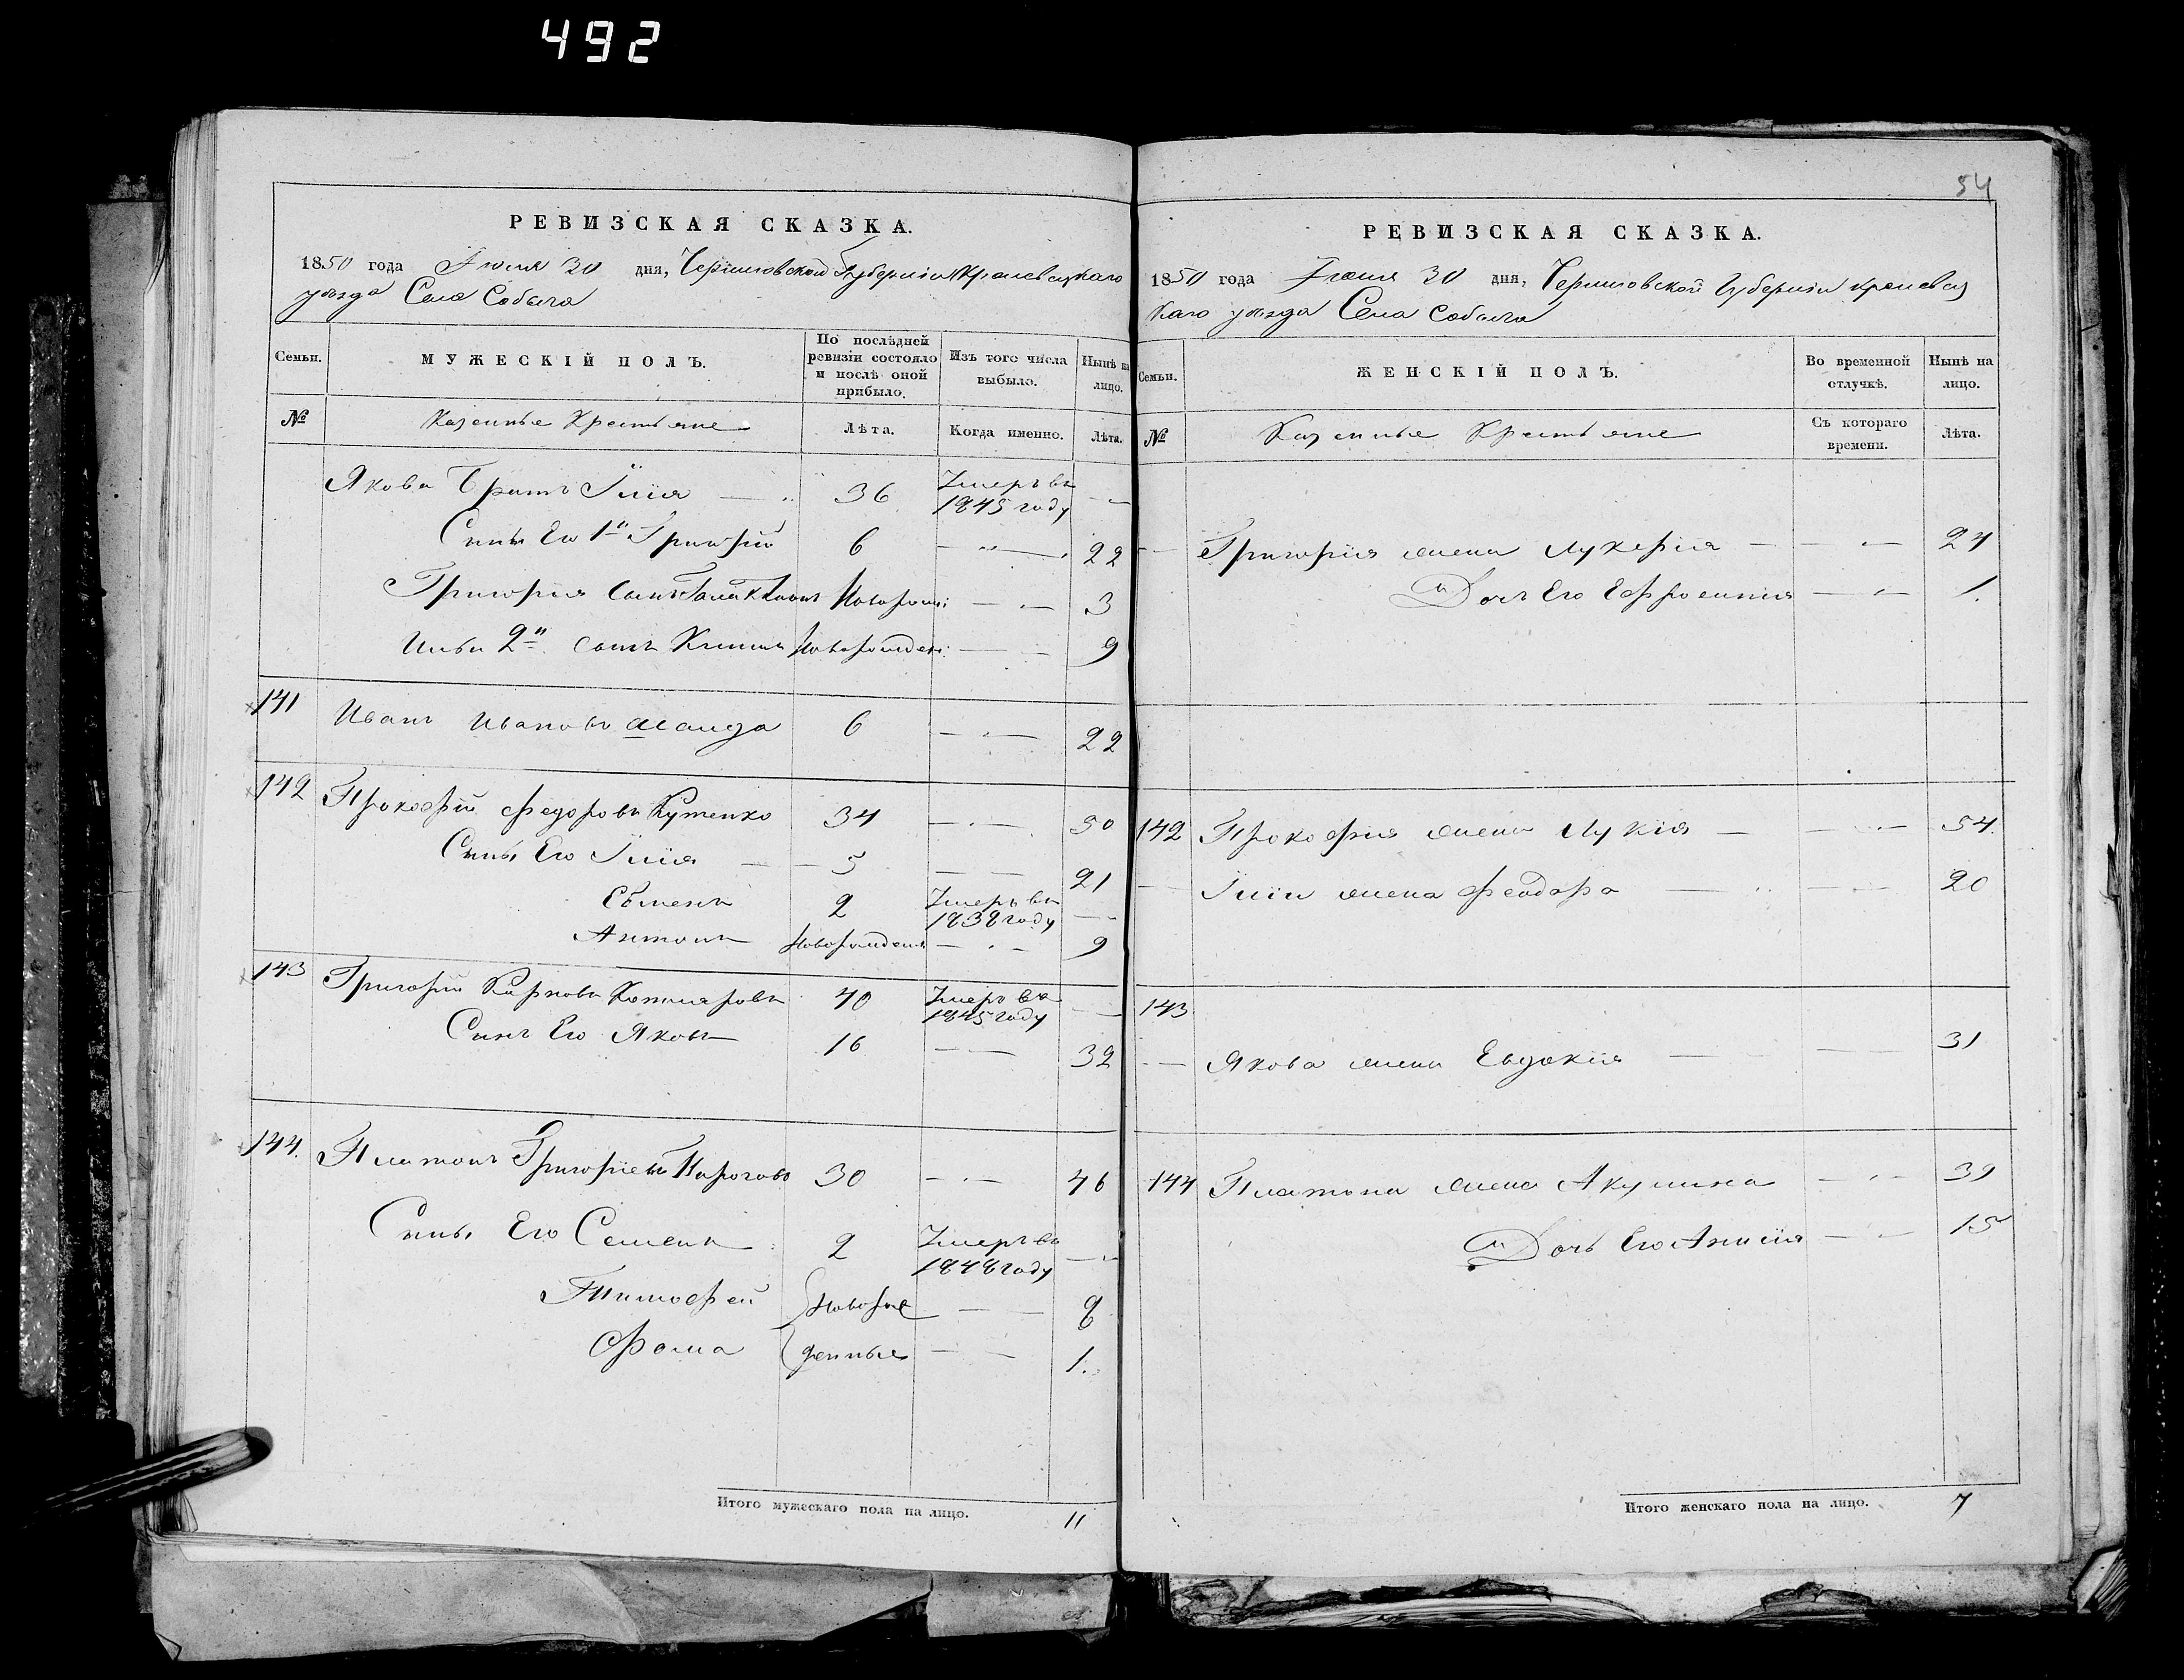 492
РЕВИЗСКАЯ СКАЗКА.
1850 года Июня 30 дня, Черниговской Губернiи Кролевецкаго
уѣзда Села Собыча
Семьи. МУЖЕСКIЙ ПОЛЪ. По послѣдней ревизiи состояло и послѣ оной прибыло. Изъ того числа выбыло. Нынѣ на лицо.
№ Казенные Крестьяне Лѣта. Когда именно. Лѣта.
Якова Братъ Илiя — 36 Умеръ въ 1845 году —
Сыны Его 1й Григорiй 6 — 22
Григорiя Сынъ Новорожд: — 3
Ильи 2й сынъ Новорожден: — 9
141 Иванъ Ивановъ 6 — 22
142 Прокофiй Федоровъ Кутенко 34 — 50
Сыны Его Илiя — 5 — 21
Семенъ 2 Умеръ въ 1838 году —
Антонъ Новорожденъ — 9
143 Григорiй Карповъ Котляровъ 40 Умеръ въ 1845 году —
Сынъ Его Яковъ 16 — 32
144. Платонъ Григорiевъ 30 — 46
Сыны Его Семенъ 2 Умеръ въ 1848 году —
Тимофей Новорож — 8
Фома денные — 1.
Итого мужескаго пола на лицо. 11
54
РЕВИЗСКАЯ СКАЗКА.
1850 года Июня 30 дня, Черниговской Губернiи Кролевец
каго уѣзда Села Собыча
Семьи. ЖЕНСКIЙ ПОЛЪ. Во временной отлучкѣ. Нынѣ на лицо.
№ Казенные Крестьяне Съ котораго времени. Лѣта.
— Григорiя жена Лукерiя — 24
Дочь Его Ефросинiя — 1.
142 Прокофiя жена Лукiя — 54.
— Илiи жена Феодора — 20
143
— Якова жена Евдокiя — 31
144 Платона жена Акулина — 39
Дочь Его Анисiя — 15
Итого женскаго пола на лицо. 7